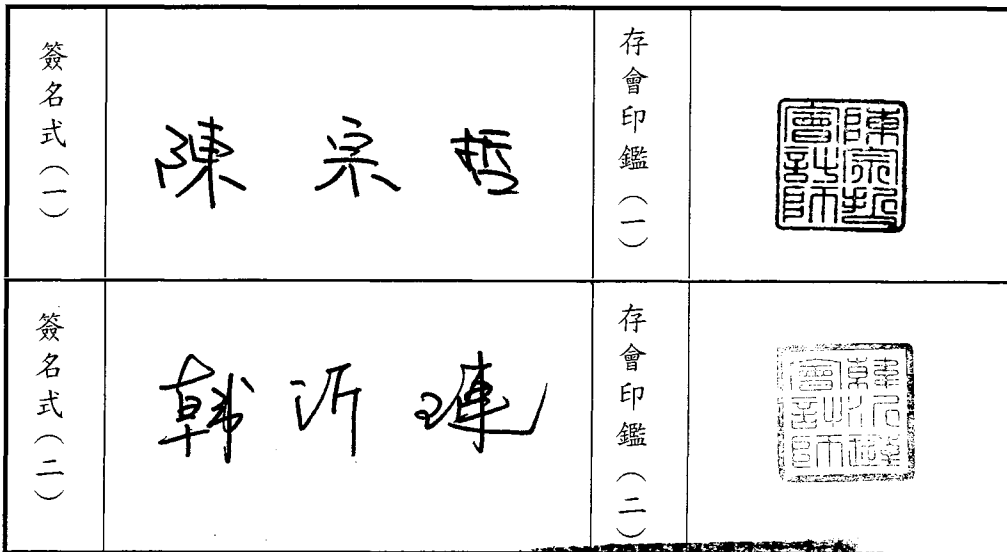 簽名式(一)
陳宗哲
存會印鑑(一)
陳宗哲會計師
簽名式(二)
韓沂璉
存會印鑑(二)
韓沂璉會計師